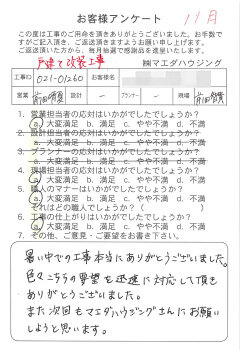 お客様アンケート 11月
この度は工事のご用命を頂きありがとうございました。お手数で
すがご記入頂き、ご返送頂きますようお願い申し上げます。
ご返送頂いた方から、毎月抽選で感謝品を進呈いたします。
戸建て改装工事 ㈱マエダハウジング
工事ID 021-01260 お客様名
営業 前田 設計 ー プランナー ー 現場 前田
1. 営業担当者の応対はいかがでしたでしょうか？
a. 大変満足 b. 満足 c. やや不満 d. 不満
2. 設計担当者の応対はいかがでしたでしょうか？
a. 大変満足 b. 満足 c. やや不満 d. 不満
3. プランナーの応対はいかがでしたでしょうか？
a. 大変満足 b. 満足 c. やや不満 d. 不満
4. 現場担当者の応対はいかがでしたでしょうか？
a. 大変満足 b. 満足 c. やや不満 d. 不満
5. 職人のマナーはいかがでしたでしょうか？
a. 大変満足 b. 満足 c. やや不満 d. 不満
それはどの職人でしょうか？（ ）
6. 工事の仕上がりはいかがでしたでしょうか？
a. 大変満足 b. 満足 c. やや不満 d. 不満
7. その他、ご意見・ご要望をお書き下さい。
暑い中での工事本当にありがとうございました。
色々こちらの要望を迅速に対応して頂き
ありがとうございました。
また次回もマエダハウジングさんにお願い
しようと思います。